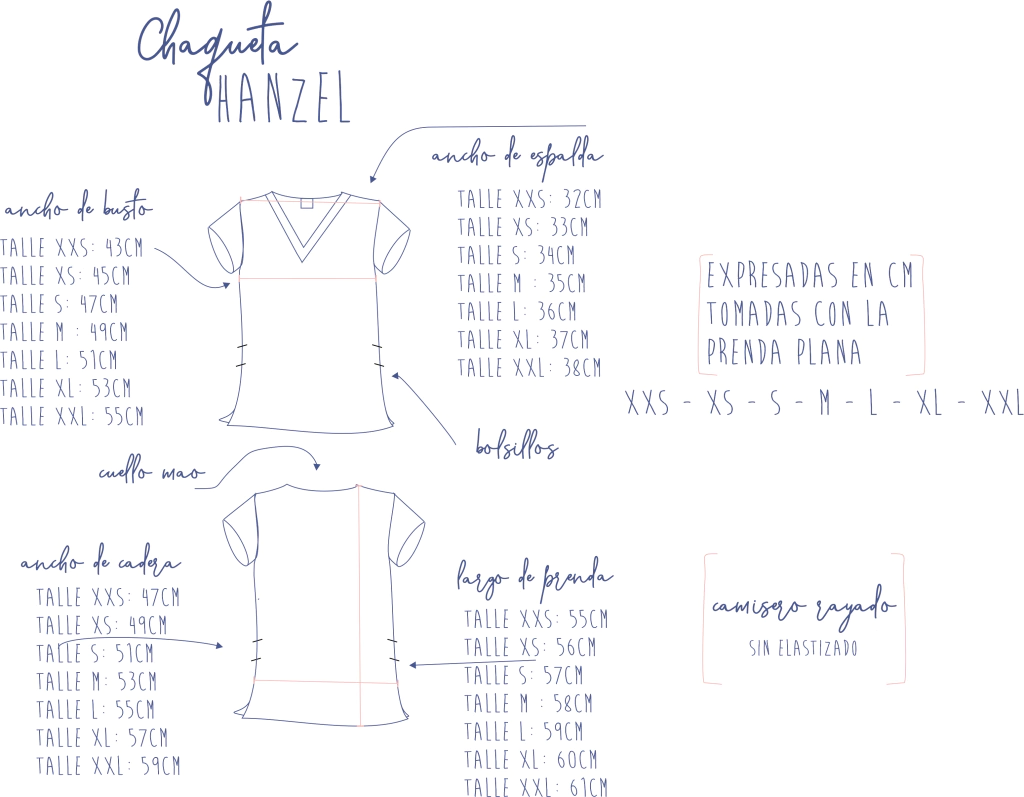 Chaqueta
HANZEL
ancho de espalda
TALLE XXS: 32CM
TALLE XS: 33CM
TALLE S: 34CM
TALLE M : 35CM
TALLE L: 36CM
TALLE XL: 37CM
TALLE XXL: 38CM
ancho de busto
TALLE XXS: 43CM
TALLE XS: 45CM
TALLE S: 47CM
TALLE M : 49CM
TALLE L: 51CM
TALLE XL: 53CM
TALLE XXL: 55CM
EXPRESADAS EN CM
TOMADAS CON LA
PRENDA PLANA
XXS - XS - S - M - L - XL - XXL
bolsillos
cuello mao
ancho de cadera
TALLE XXS: 47CM
TALLE XS: 49CM
TALLE S: 51CM
TALLE M: 53CM
TALLE L: 55CM
TALLE XL: 57CM
TALLE XXL: 59CM
largo de prenda
TALLE XXS: 55CM
TALLE XS: 56CM
TALLE S: 57CM
TALLE M : 58CM
TALLE L: 59CM
TALLE XL: 60CM
TALLE XXL: 61CM
camisero rayado
SIN ELASTIZADO